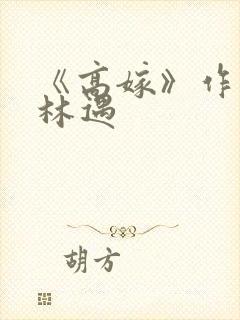 《高嫁》作
林遇
胡方